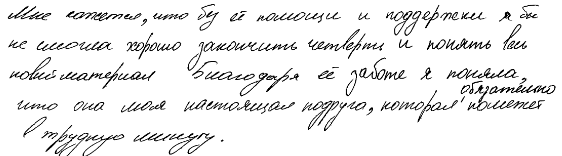 Мне кажется, что без её помощи и поддержки я бы
не смогла хорошо закончить четверть и понять весь
новый материал Благодаря её заботе я поняла,
что она моя настоящая подруга, которая обязательно поможет
в трудную минуту.